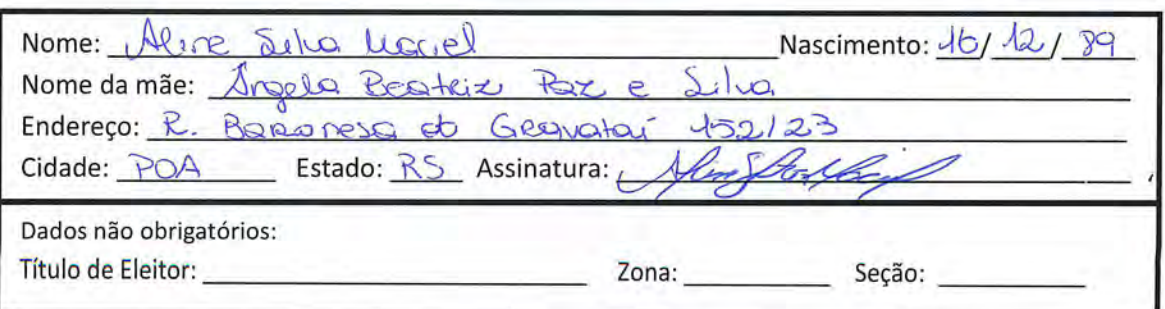 Nome: Aline Silva Maciel Nascimento: 16/ 12 / 89
Nome da mãe: Ângela Beatriz Paz e Silva
Endereço: R. Baronesa do Gravataí 152/23
Cidade: POA Estado: RS Assinatura:
Dados não obrigatórios:
Título de Eleitor: Zona: Seção: